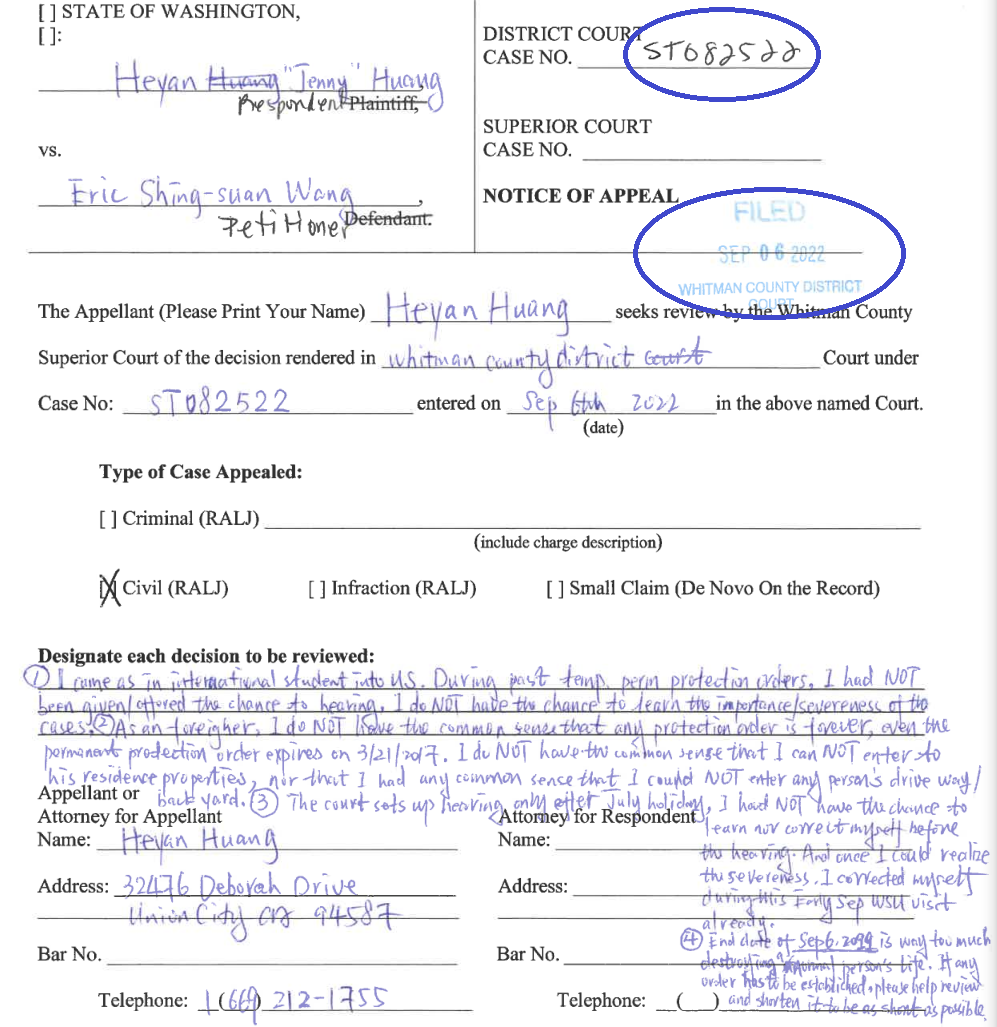 [ ] STATE OF WASHINGTON,
[ ]:
Heyan Huang "Jenny" Huang
Respondent Plaintiff,
vs.
Eric Shing-suan Wang,
Petitioner Defendant.
DISTRICT COURT
CASE NO. ST082522
SUPERIOR COURT
CASE NO.
NOTICE OF APPEAL
FILED
SEP 06 2022
WHITMAN COUNTY DISTRICT
COURT
The Appellant (Please Print Your Name) Heyan Huang seeks review by the Whitman County
Superior Court of the decision rendered in whitman county district court Court under
Case No: ST082522 entered on Sep 6th 2022 in the above named Court.
(date)
Type of Case Appealed:
[ ] Criminal (RALJ)
(include charge description)
[X] Civil (RALJ) [ ] Infraction (RALJ) [ ] Small Claim (De Novo On the Record)
Designate each decision to be reviewed:
① I came as in international student into US. During past temp. perm protection orders, I had NOT
been given/offered the chance to hearing. I do NOT have the chance to learn the importance/severeness of the
cases. ② As an foreigher, I do NOT have the common sense that any protection order is forever, even the
permanent protection order expires on 3/21/2017. I do NOT have the common sense that I can NOT enter to
his residence properties, nor that I had any common sense that I could NOT enter any person's drive way/
back yard. ③ The court sets up hearing only after July holiday, I had NOT have the chance to
learn nor correct myself before
the hearing. And once I could realize
the severeness. I corrected myself
during this Early Sep WSU visit
already.
④ End date of Sep 6, 2099 is way too much
destroying a normal person's life. If any
order has to be established, please help review
and shorten it to be as short as posible.
Appellant or
Attorney for Appellant
Name: Heyan Huang
Address: 32476 Deborah Drive
Union City CA 94587
Bar No.
Telephone: 1 (669) 212-1755
Attorney for Respondent
Name:
Address:
Bar No.
Telephone: ( )